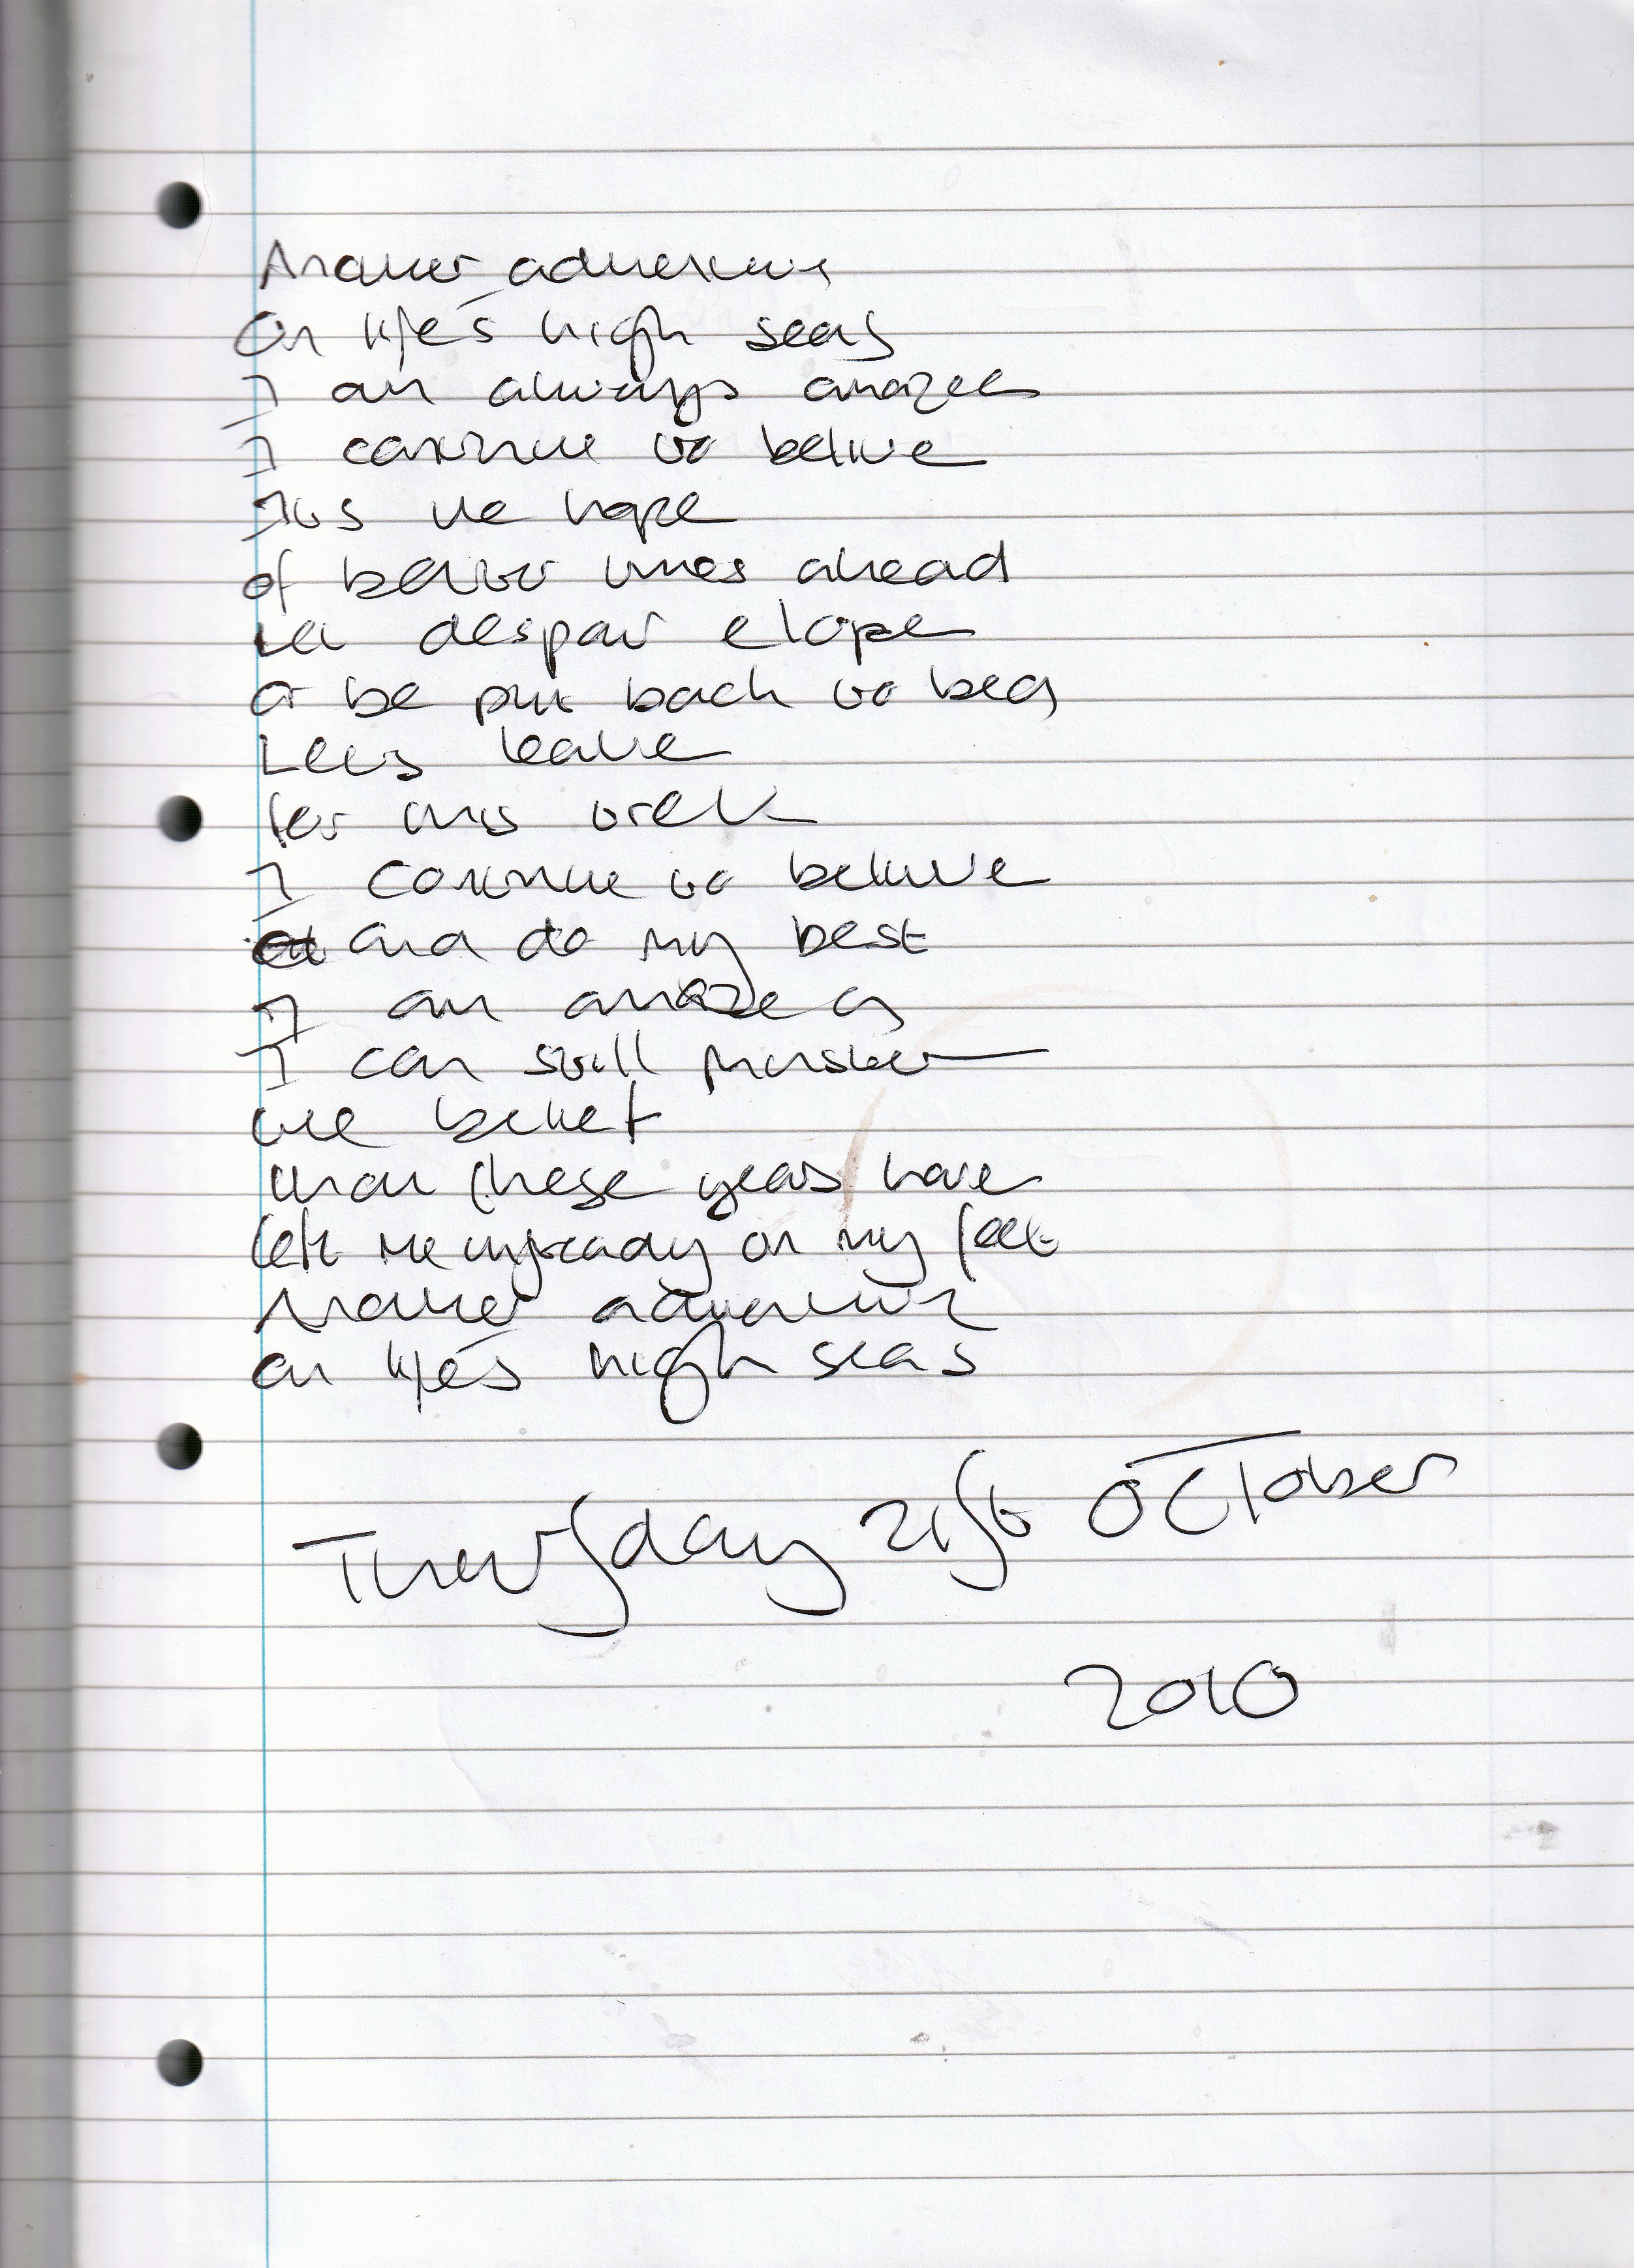 Another adventure
On life's high seas
I am always amazed
I continue to believe
It's the hope
of better times ahead
Let despair elope
or be put back to bed
Let's leave
for this trek
I continue to believe
and do my best
I am amazed
I can still muster
the belief
that these years have
left me unsteady on my feet
Another adventure
on life's high seas
Thursday 21st October
2010